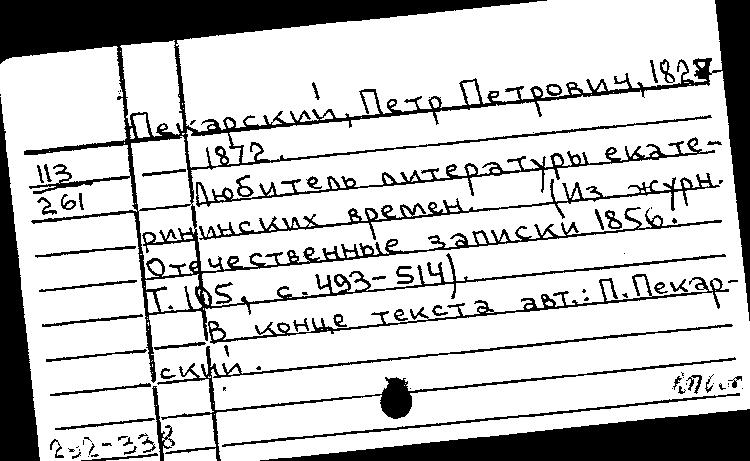 Пекарский, Петр Петрович, 1827-
1872.
113
261
Любитель литературы екате-
рининских времен. (Из журн.
Отечественные записки 1856.
Т. 105, с. 493-514).
В конце текста авт.: П. Пекар-
ский.